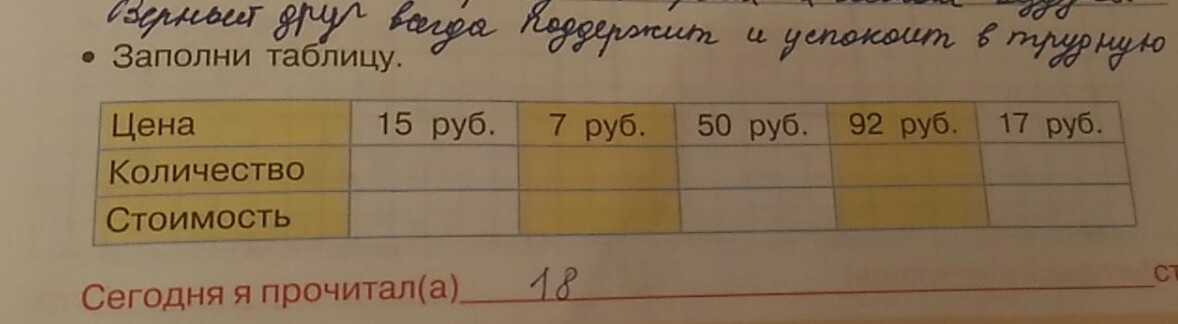 Верный друг всегда поддержит и успокоит в трудную
• Заполни таблицу.
Цена 15 руб. 7 руб. 50 руб. 92 руб. 17 руб.
Количество
Стоимость
Сегодня я прочитал(а) 18